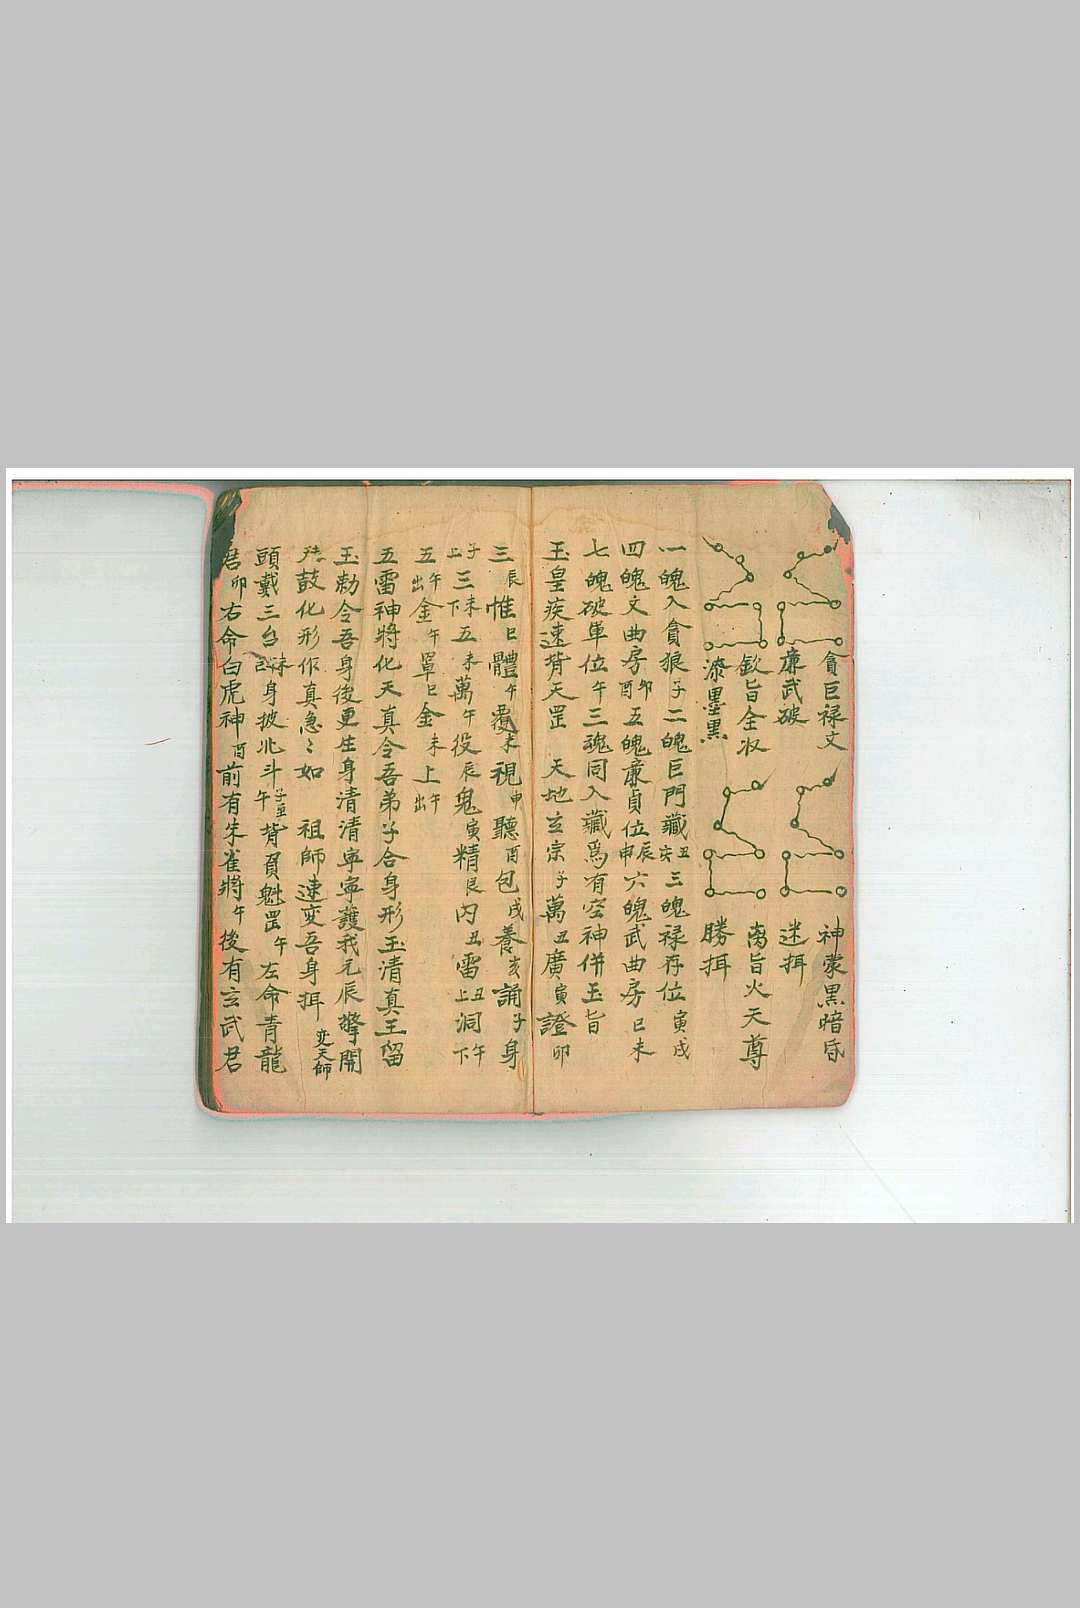 貪巨禄文
廉武破
欽旨全收
漆墨黑
神蒙黑暗昏
迷挕
南旨火天尊
勝挕
一魄入貪狼子二魄巨門藏丑亥三魄禄存位寅戌
四魄文曲房卯酉五魄廉貞位辰申六魄武曲房巳未
七魄破軍位午三魂同入藏為有空神併玉旨
玉皇疾速背天罡 天地玄宗子萬丑廣寅證卯
三辰惟巳體午覆未視申聽酉包戌養亥誦子身
子上三未下五未萬午役辰鬼寅精艮内丑雷丑上洞午下
五午出金午罩巳金未上午出
五雷神將化天真令吾弟子合身形玉清真王留
玉勅令吾身後更生身清清寧寧護我元辰擎開
鼓化形作真急〻如 祖師速变吾身挕 变天師
頭戴三台未身披北斗子至午背負魁罡午左命青龍
君卯右命白虎神酉前有朱雀將午後有玄武君